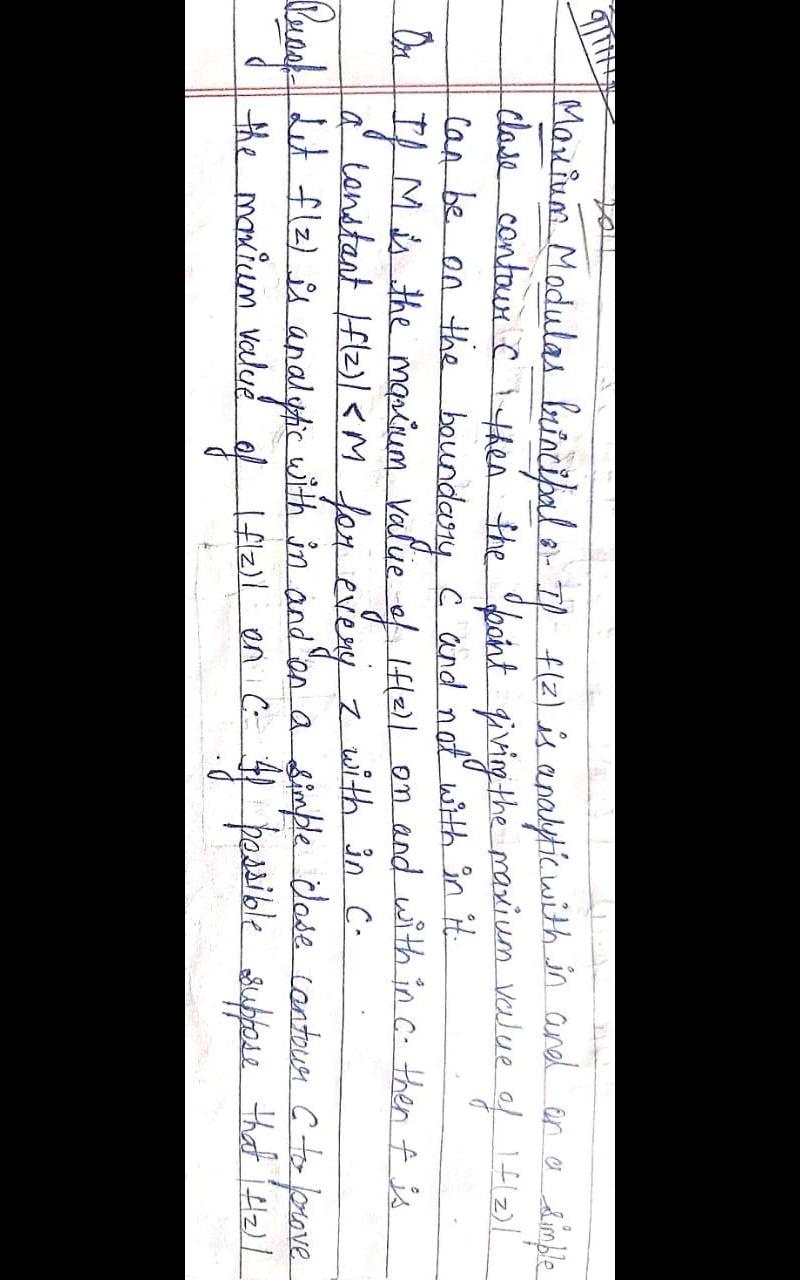 Maxium Modulas Principal :- If f(z) is analytic with in and on a simple
close contour C, then the point giving the maxium value of |f(z)|
can be on the boundary C and not with in it.
Or If M is the maxium value of |f(z)| on and with in C. then f is
a constant |f(z)| < M for every z with in C.
Proof:- Let f(z) is analytic with in and on a simple close contour C to prove
the maxium value of |f(z)| on C. If possible suppose that |f(z)|